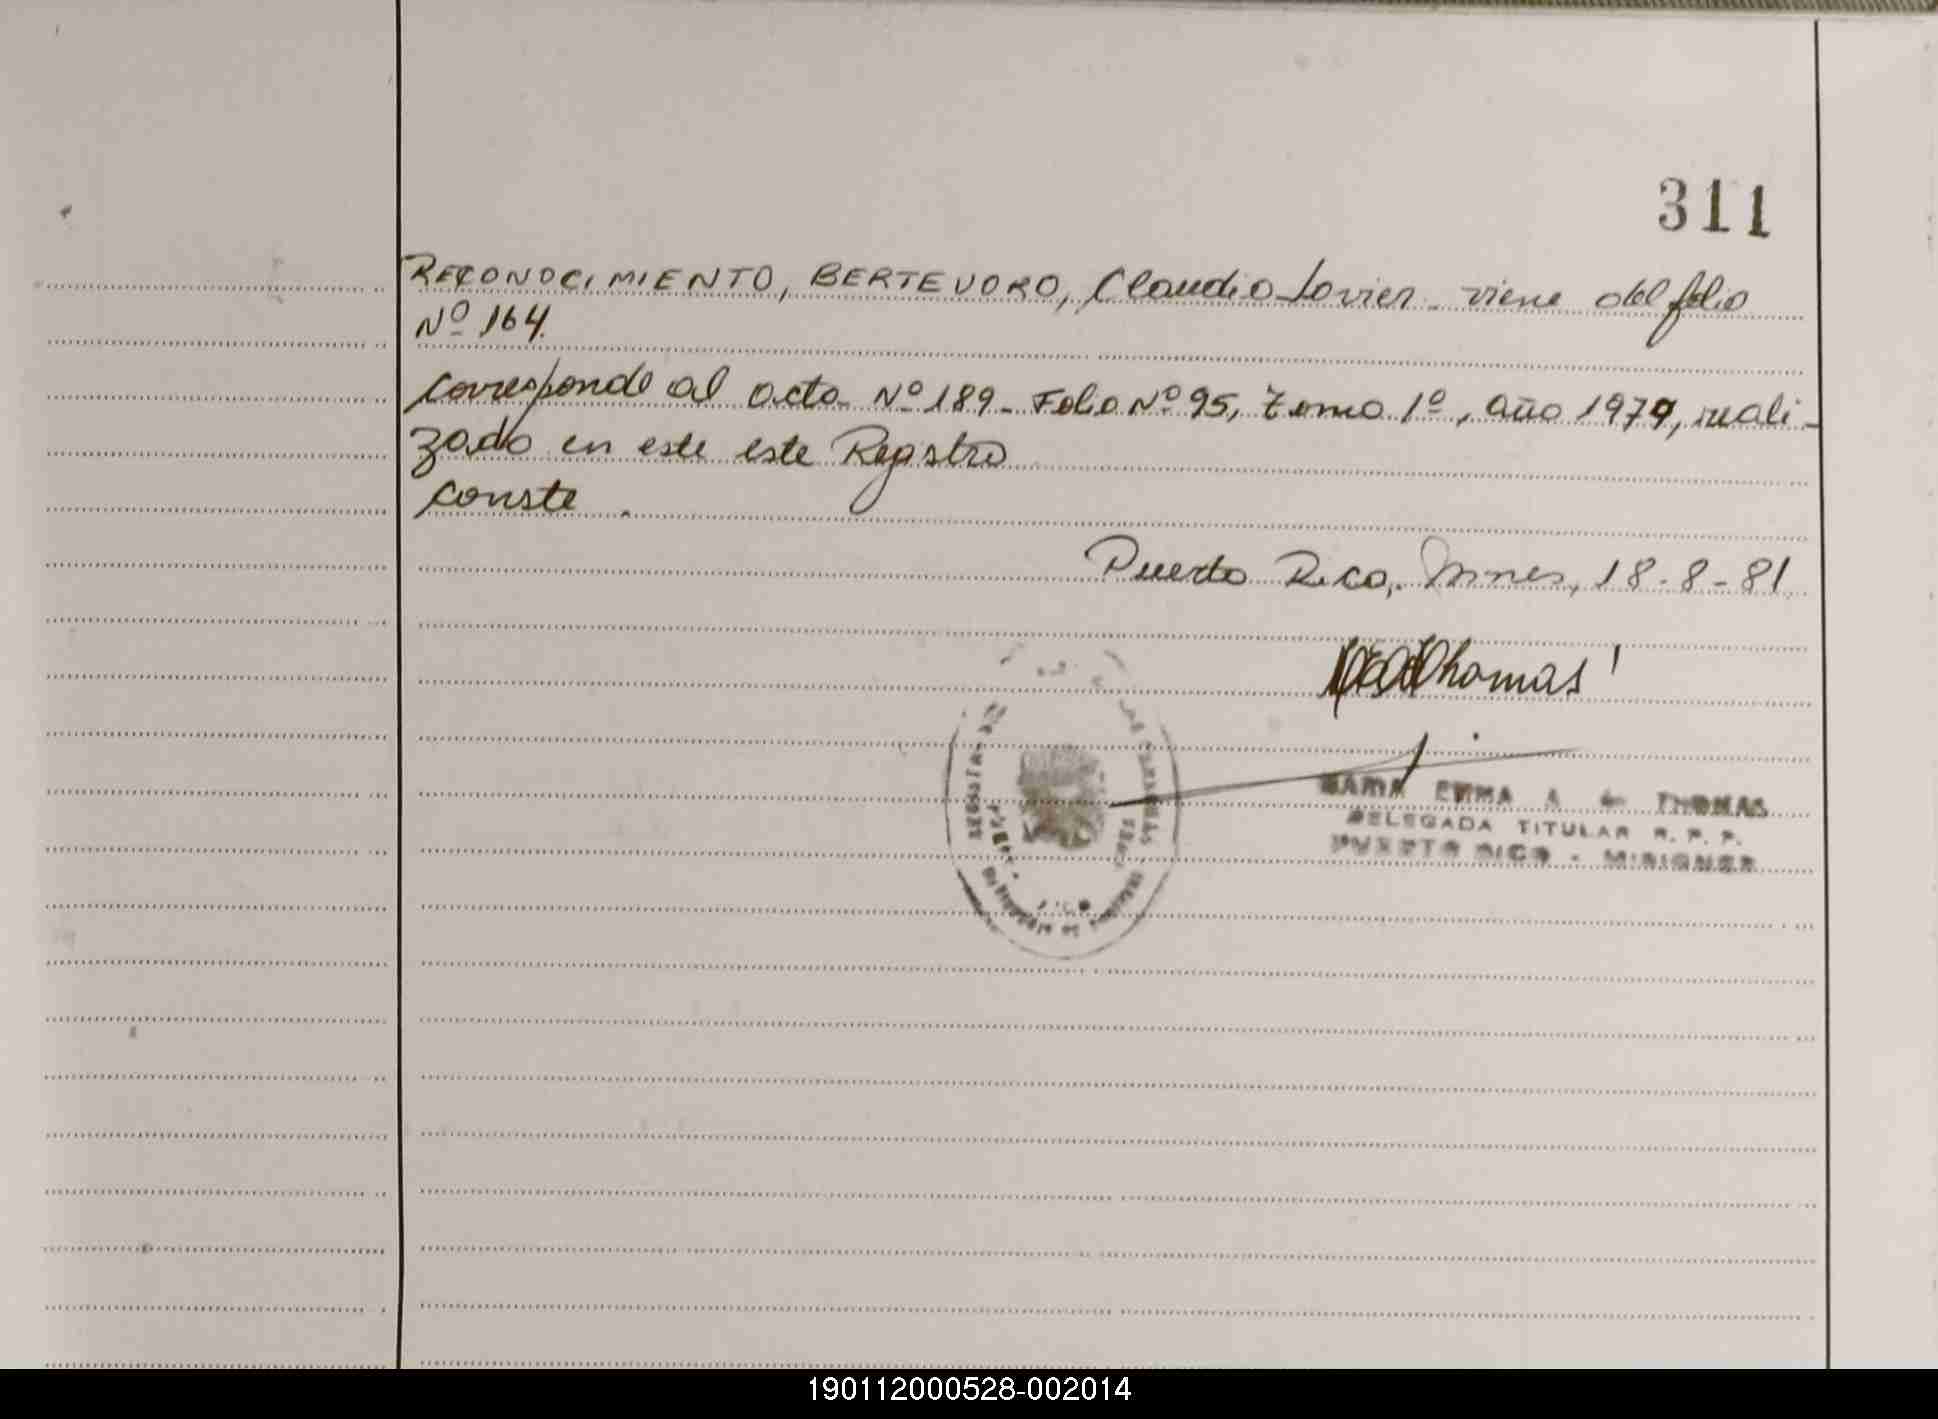 311
RECONOCIMIENTO, BERTEVORO, Claudio Javier. viene del folio
Nº 164.
Corresponde al acta Nº 189. Folio Nº 95, Tomo 1º, año 1979, reali-
zado en este este Registro
conste.
Puerto Rico, Mnes, 18-8-81
Thomas
EMMA A. de THOMAS
DELEGADA TITULAR R. P. P.
PUERTO RICO - MISIONES
190112000528-002014